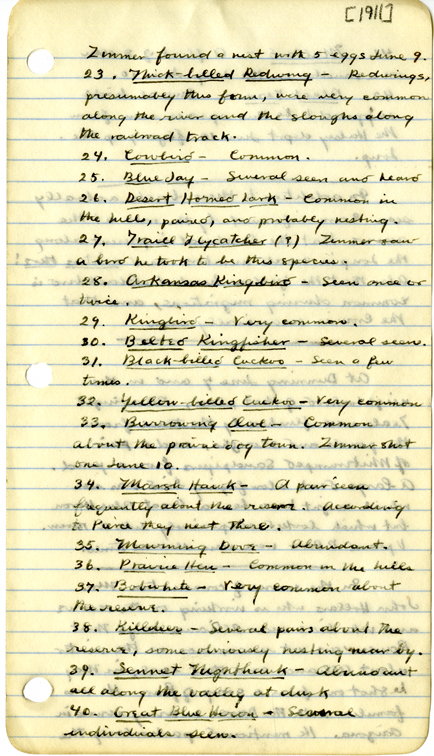 [1911]
Zimmer found a nest with 5 eggs June 9.
23. Thick-billed Redwing – Redwings,
presumably this form, were very common
along the river and the sloughs along
the railroad track.
24. Cowbird – Common.
25. Blue Jay – Several seen and heard
26. Desert Horned Lark – Common in
the hills, paired, and probably nesting.
27. Traill Flycatcher (?) Zimmer saw
a bird he took to be this species.
28. Arkansas Kingbird – Seen once or
twice.
29. Kingbird – Very common.
30. Belted Kingfisher – Several seen.
31. Black-billed Cuckoo – Seen a few
times.
32. Yellow-billed Cuckoo – Very common
33. Burrowing Owl – Common
about the prairie dog town. Zimmer shot
one June 10.
34. Marsh Hawk – A pair seen
frequently about the reserve. According
to Pierce they nest there.
35. Mourning Dove – Abundant.
36. Prairie Hen – Common in the hills
37. Bobwhite – Very common about
the reserve.
38. Killdeer – Several pairs about the
reserve, some obviously nesting near by.
39. Sennet Nighthawk – Abundant
all along the valley at dusk
40. Great Blue Heron – Several
individuals seen.